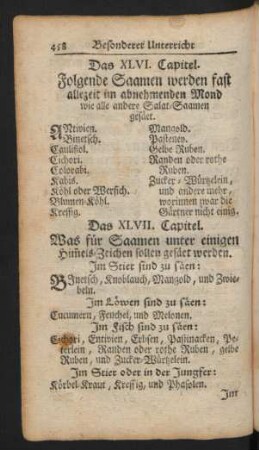 458 Besonderer Unterricht
Das XLVI. Capitel.
Folgende Saamen werden fast
allezeit im abnehmenden Mond
wie alle andere Salat-Saamen
gesäet.
ANtivien. Mangold.
Binetsch. Pasteney.
Caulifiol. Gelbe Ruben.
Cichori. Randen oder rothe
Colorabi. Ruben.
Kabis. Zucker-Würtzelein,
Köhl oder Wersich. und andere mehr,
Blumen-Köhl. worinnen zwar die
Kressig. Gärtner nicht einig.
Das XLVII. Capitel.
Was für Saamen unter einigen
Him̃els-Zeichen sollen gesäet werden.
Im Stier sind zu säen:
BInetsch, Knoblauch, Mangold, und Zwie-
beln.
Im Löwen sind zu säen:
Cucumern, Fenchel, und Melonen.
Im Fisch sind zu säen:
Cichori, Entivien, Erbsen, Pastinacken, Pe-
terlein, Randen oder rothe Ruben, gelbe
Ruben, und Zucker-Würtzelein.
Im Stier oder in der Jungfer:
Körbel-Kraut, Kressig, und Phasolen.
Im